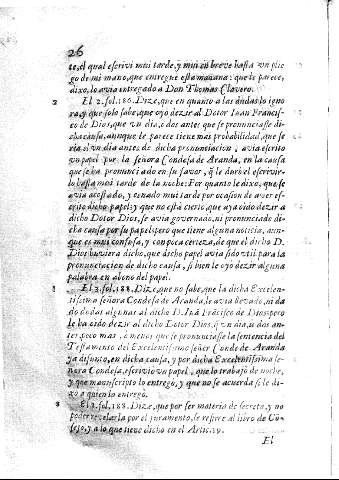 26
te, el qual escrivi mui tarde, y mui en breve hasta un plie
go de mi mano, que entregue esta mañana: que le parece,
dixo, lo avia entregado a Don Thomas Clavero.
2 El 2. fol. 186. Dize, que en quanto a las dudas lo igno
ra, y que solo sabe, que oyò dezir al Dotor Iuan Francis-
co de Dios, que un dia, o dos antes que se pronunciasse di-
cha causa, aunque le parece tiene mas probabilidad, que se
ria el un dia antes de dicha pronunciacion, avia escrito
un papel por la señora Condesa de Aranda, en la causa
que se ha pronunciado en su favor, q̃ le durò el escrevir-
lo hasta mas tarde de la noche: Per quanto le dixo, que se
avia acostado, y cenado mui tarde por ocasion de aver es-
crito dicho papel; y que no està cierto, que aya oido dezir a
dicho Dotor Dios, se avia governado, ni pronunciado di-
cha causa por su papel; pero que tiene alguna noticia, aun-
que es mui confusa, y con poca certeza, de que el dicho D.
Dios huviera dicho, que dicho papel avia sido util para la
pronunciacion de dicha causa, si bien le oyò dezir alguna
palabra en abono del papel.
El 3. fol. 188. Dize, que no sabe, que la dicha Excelen-
tissima señora Condesa de Aranda, le avia dexado, ni da
do dudas algunas al dicho D. Iuã Frãcisco de Dios: pero
le ha oido dezir al dicho Dotor Dios, q̃ un dia, ù dos an-
tes, poco mas, ò menos que se pronunciasse la sentencia del
Testamento del Excelentissimo señor Conde de Aranda
ya difunto, en dicha causa, y por dicha Excelentissima se-
ñora Condesa, escrivio un papel, que lo trabajò de noche,
y que manuscripto lo entregò, y que no se acuerda si le di-
xo a quien lo entregò.
El 3. fol. 188. Dize, que por ser materia de secreto, y no
poder revelarla por el juramento, se refiere al libro de Cõ-
sejo, y a lo que tiene dicho en el Artic. 19.
El